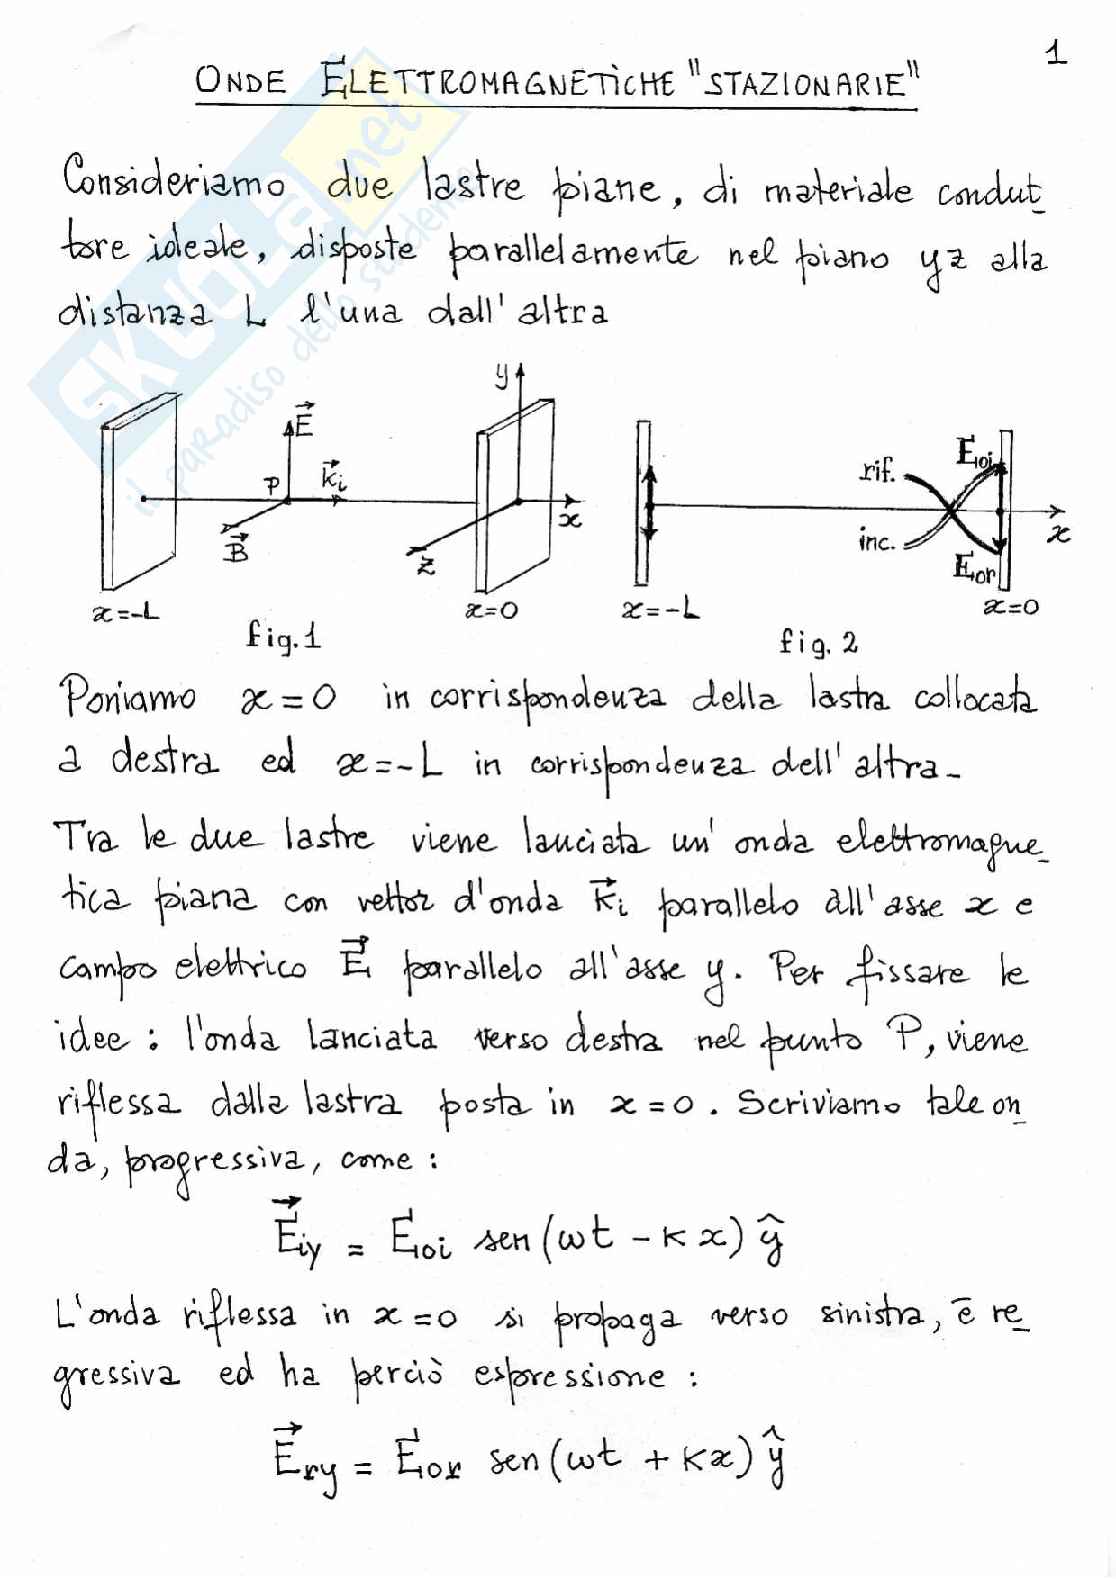 1
ONDE ELETTROMAGNETICHE "STAZIONARIE"
Consideriamo due lastre piane, di materiale condut_
tore ideale, disposte parallelamente nel piano yz alla
distanza L l'una dall'altra
SKUOLA.net
il paradiso dello studente
y
E⃗
P
k⃗i
x
B⃗
z
x=-L
x=0
fig.1
rif.
inc.
Eoi
Eor
x
x=-L
x=0
fig. 2
Poniamo x=0 in corrispondenza della lastra collocata
a destra ed x=-L in corrispondenza dell'altra-
Tra le due lastre viene lanciata un' onda elettromagne_
tica piana con vettor d'onda k⃗i parallelo all'asse x e
campo elettrico E⃗ parallelo all'asse y. Per fissare le
idee: l'onda lanciata verso destra nel punto P, viene
riflessa dalla lastra posta in x=0. Scriviamo tale on_
da, progressiva, come:
E⃗iy = Eoi sen(ωt - kx) ŷ
L'onda riflessa in x=0 si propaga verso sinistra, è re_
gressiva ed ha perciò espressione:
E⃗ry = Eor sen(ωt + kx) ŷ